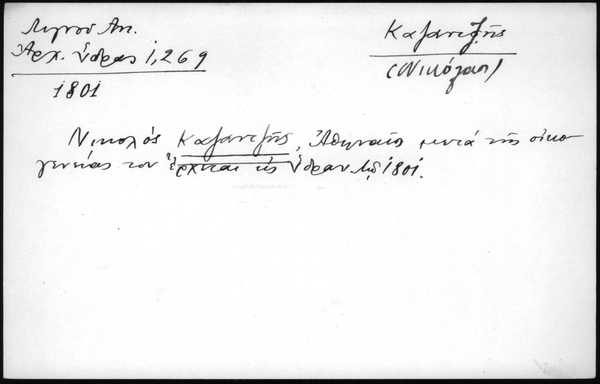 Λιγνοῦ Ἀν.
Ἀρχ. Ὕδρας 1, 269
1801
Καζαντζῆς
(Νικόλαος)
Νικολός Καζαντζῆς, Ἀθηναῖος μετά τῆς οἰκο-
γενείας του ἔρχεται εἰς Ὕδραν 1801.